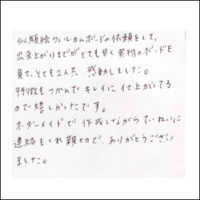 似顔絵ウェルカムボードの依頼をして、
出来上がりまでがとても早く実物のボードを
見て、とても2人共、感動しました。
特徴もつかんでキレイに仕上がってる
ので嬉しかったです。
オーダーメイドで作成しながらていねいに
連絡もくれ親切で、ありがとうござい
ました。